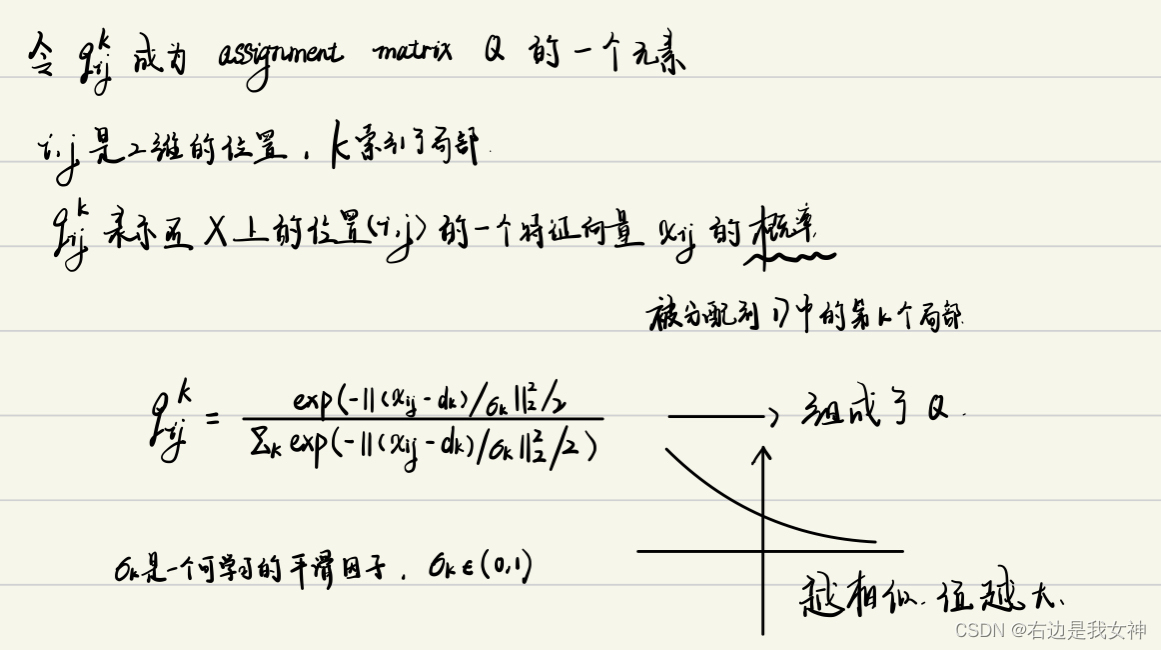 令 q_{ij}^k 成为 assignment matrix Q 的一个元素
i,j是2维的位置，k索引了局部.
q_{ij}^k 表示在 X上的位置(i,j)的一个特征向量 x_{ij} 的概率
被分配到 D中的第k个局部.
q_{ij}^k = \frac{exp(-||(x_{ij}-d_k)/σ_k||_2^2/2}{Σ_k exp(-||(x_{ij}-d_k)/σ_k||_2^2/2)} → 组成了Q.
σ_k是一个可学习的平滑因子. σ_k∈(0,1)
越相似.值越大.
CSDN @右边是我女神